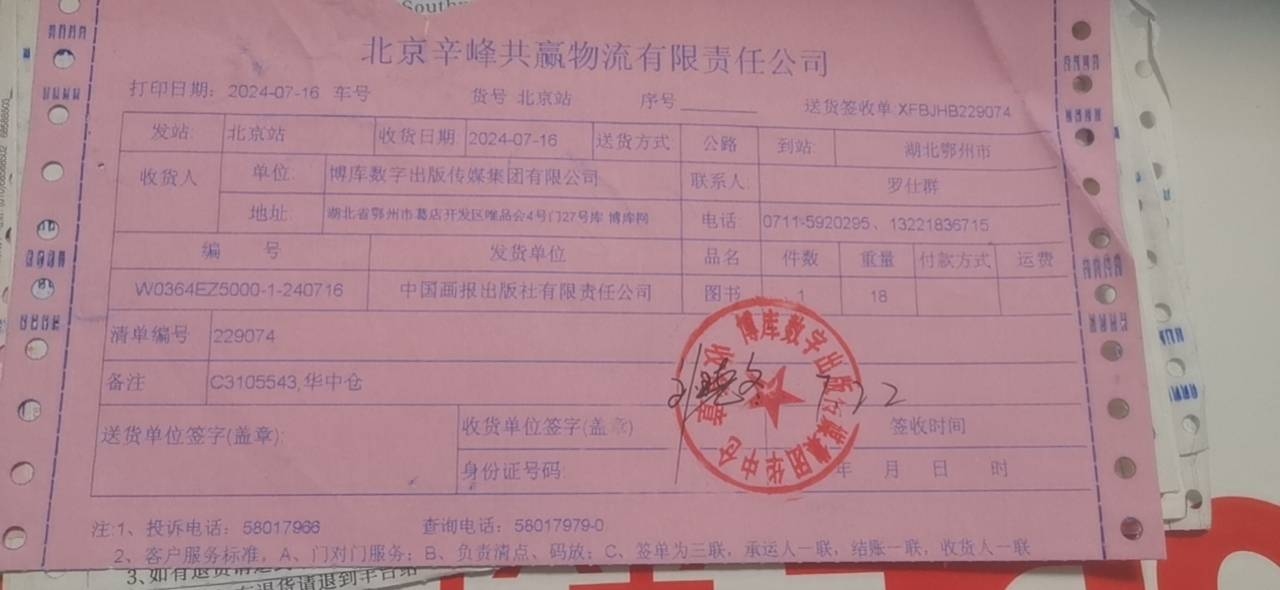 北京辛峰共赢物流有限责任公司
打印日期: 2024-07-16 车号 货号 北京站 序号 送货签收单:XFBJHB229074
发站: 北京站 收货日期 2024-07-16 送货方式 公路 到站: 湖北鄂州市
收货人 单位: 博库数字出版传媒集团有限公司 联系人: 罗仕群
地址: 湖北省鄂州市葛店开发区唯品会4号门27号库 博库网 电话: 0711-5920295、13221836715
编 号 发货单位 品名 件数 重量 付款方式 运费
W0364EZ5000-1-240716 中国画报出版社有限责任公司 图书 1 18
清单编号 229074
备注 C3105543,华中仓
送货单位签字(盖章): 收货单位签字(盖章) 签收时间
身份证号码: 年 月 日 时
博库数字出版传媒集团华中仓
收货章
7.22
注:1、投诉电话: 58017966 查询电话: 58017979-0
2、客户服务标准, A、门对门服务; B、负责清点、码放; C、签单为三联, 承运人一联, 结账一联, 收货人一联